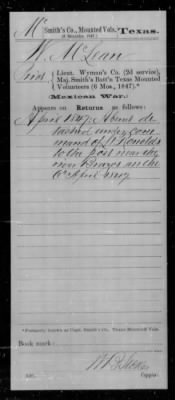 Mc Smith's Co., Mounted Vols. Texas.
(6 Months, 1847.)
W. McLean
Lieut. Wyman's Co. (2d service),
Maj. Smith's Batt'n Texas Mounted
Volunteers (6 Mos., 1847).*
(Mexican War.)
Appears on Returns as follows:
April 1847, Absent de
tached under com
mand of Lt Ronolds
to the post near the
river Brazos on the
6th April 1847
*Formerly known as Capt. Smith's Co. Texas Mounted Vols.
Book mark:
Copyist.